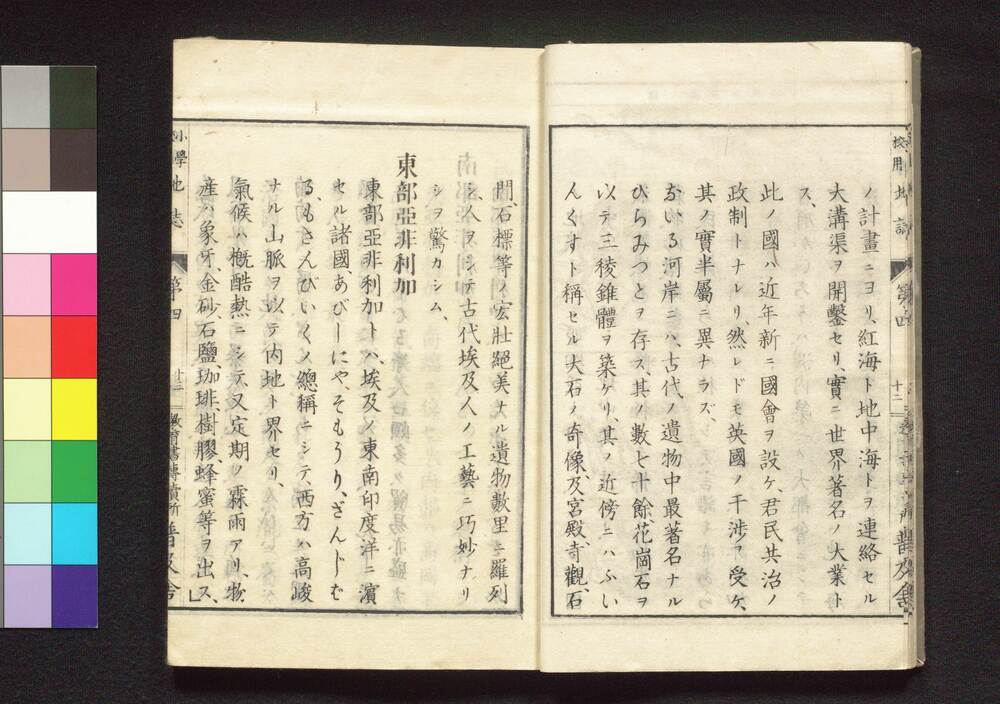 ノ計畫ニヨリ、紅海ト地中海トヲ連絡セル
大溝渠ヲ開鑿セリ、實ニ世界著名ノ大業ト
ス、
此ノ國ハ近年新ニ國會ヲ設ケ、君民共治ノ
政制トナレリ、然レドモ英國ノ干涉ヲ受ケ、
其ノ實半屬ニ異ナラズ、
ないる河岸ニハ、古代ノ遺物中最著名ナル
ぴらみつとヲ存ス、其ノ數七十餘花崗石ヲ
以テ三稜錐體ヲ築ケリ、其ノ近傍ニハふい
んくすト稱セル大石ノ奇像及宮殿、寺觀、石
門、石標等ノ宏壯絕美ナル遺物數里ニ羅列
シ、人ヲシテ古代埃及人ノ工藝ニ巧妙ナリ
シヲ驚カシム、
東部亞非利加
東部亞非利加トハ、埃及ノ東南印度洋ニ濱
セル諸國、あびしにや、そもうり、ざんじば
る、もざんびいくノ總稱ニシテ、西方ハ高峻
ナル山脈ヲ以テ內地ト界セリ、
氣候ハ槪酷熱ニシテ、又定期ノ霖雨アリ、物
產ハ象牙、金砂、石鹽、珈琲、樹膠、蜂蜜等ヲ出ス、
小學地誌
第四
普及舍
校用地誌
第四
十二
普及舍